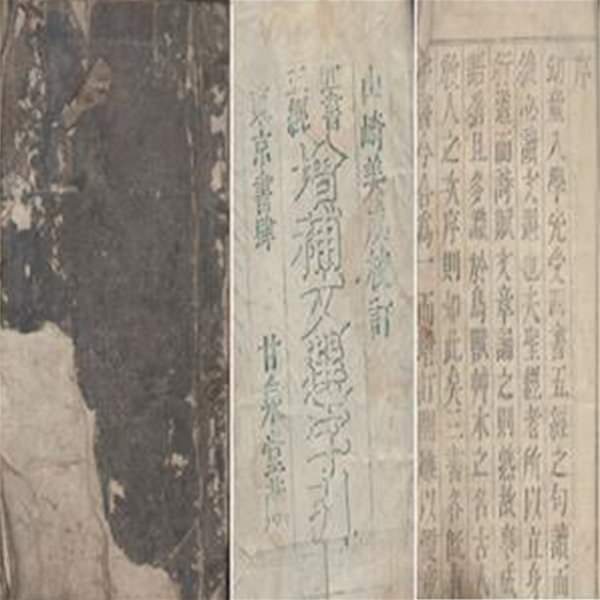 山崎美成校訂
四書
五經
増補文選字引
東京書肆 甘泉堂
序
幼童入學先受四書五經之句讀而
後必讀文選也夫聖經者所以立身
行道而詩賦文章誦之則熟故事成
語且多識於鳥獸艸木之名古人
人之文序則如此矣三書各
分合爲一而訂開雕以